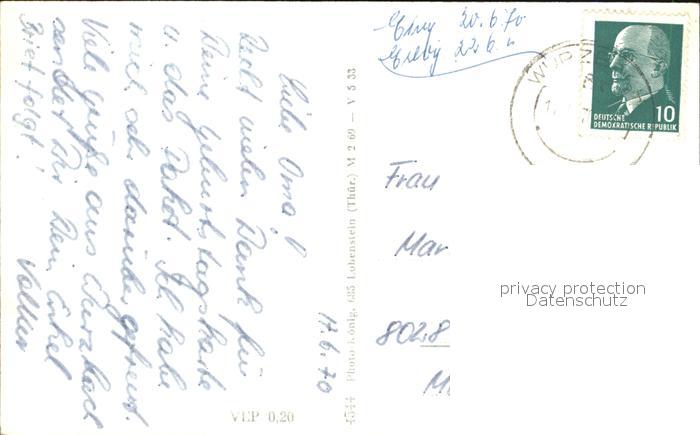 Liebe Oma!
Recht vielen Dank für
Deine Geburtstagskarte
u. das Paket. Ich habe
mich sehr darüber gefreut.
Viele Grüße aus
sendet Dir Dein Enkel
Brief folgt! Volker
17.6.70
VEP 0,20
4544 Photo König, 685 Lobenstein (Thür.) M 2 69 — V 5 33
20.6.70
22.6.
WURZ
DEUTSCHE
DEMOKRATISCHE REPUBLIK
10
Frau
Mar
8028
M
privacy protection
Datenschutz